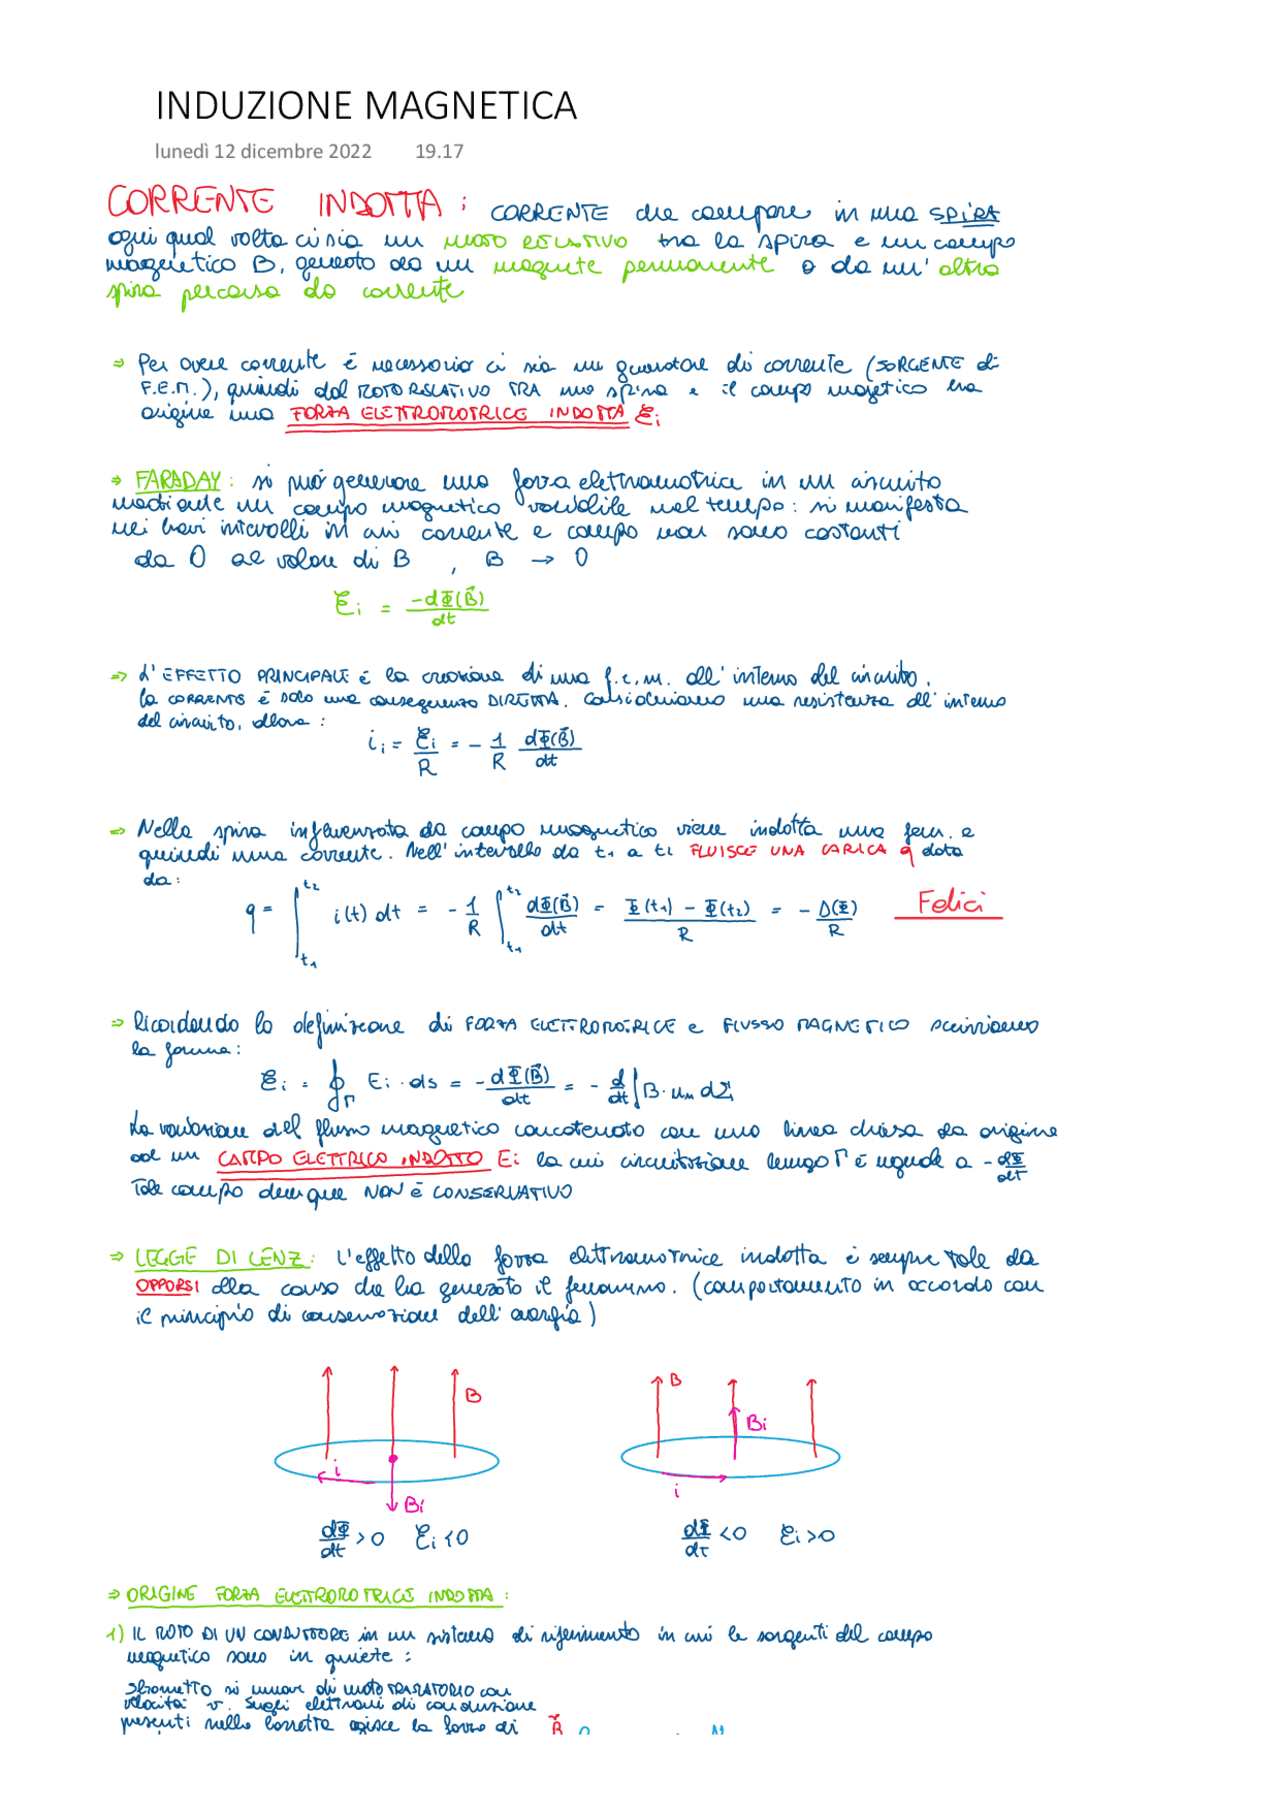 INDUZIONE MAGNETICA
lunedì 12 dicembre 2022 19.17
CORRENTE INDOTTA : CORRENTE che compare in una SPIRA
ogni qual volta ci sia un MOTO RELATIVO tra la spira e un campo
magnetico B, generato da un magnete permanente o da un' altra
spira percorsa da corrente
⇒ Per avere corrente è necessario ci sia un generatore di corrente (SORGENTE di
F.E.M.), quindi dal MOTO RELATIVO TRA una spira e il campo magnetico ha
origine una FORZA ELETTROMOTRICE INDOTTA Ɛi
⇒ FARADAY : si può generare una forza elettromotrice in un circuito
mediante un campo magnetico variabile nel tempo : si manifesta
nei brevi intervalli in cui corrente e campo non sono costanti
da 0 al valore di B , B → 0
Ɛi = -dΦ(B⃗)/dt
⇒ L'EFFETTO PRINCIPALE è la creazione di una f.e.m. all'interno del circuito.
la CORRENTE è solo una conseguenza DIRETTA. Consideriamo una resistenza all'interno
del circuito, allora :
ii = Ɛi/R = - 1/R dΦ(B⃗)/dt
⇒ Nella spira influenzata da campo magnetico viene indotta una fem. e
quindi una corrente. Nell'intervallo da t1 a t2 FLUISCE UNA CARICA q data
da :
q = ∫t1t2 i(t) dt = - 1/R ∫t1t2 dΦ(B⃗)/dt = Φ(t1) - Φ(t2)/R = - Δ(Φ)/R Felici
⇒ Ricordando la definizione di FORZA ELETTROMOTRICE e FLUSSO MAGNETICO scriviamo
la forma :
Ɛi = ∮Γ Ei · ds = - dΦ(B⃗)/dt = - d/dt ∫ B · un dΣ
La variazione del flusso magnetico concatenato con una linea chiusa da origine
ad un CAMPO ELETTRICO INDOTTO Ei la cui circuitazione lungo Γ è uguale a - dΦ/dt
Tale campo dunque NON È CONSERVATIVO
⇒ LEGGE DI LENZ : L'effetto della forza elettromotrice indotta è sempre tale da
OPPORSI alla causa che ha generato il fenomeno. (comportamento in accordo con
il principio di conservazione dell'energia)
B
i
Bi
dΦ/dt > 0 Ɛi < 0
B
Bi
i
dΦ/dt < 0 Ɛi > 0
⇒ ORIGINE FORZA ELETTROMOTRICE INDOTTA :
1) IL MOTO DI UN CONDUTTORE in un sistema di riferimento in cui le sorgenti del campo
magnetico sono in quiete :
sbarretta si muove di moto TRASLATORIO con
velocità v. Sugli elettroni di conduzione
presenti nella barretta agisce la forza di
B⃗